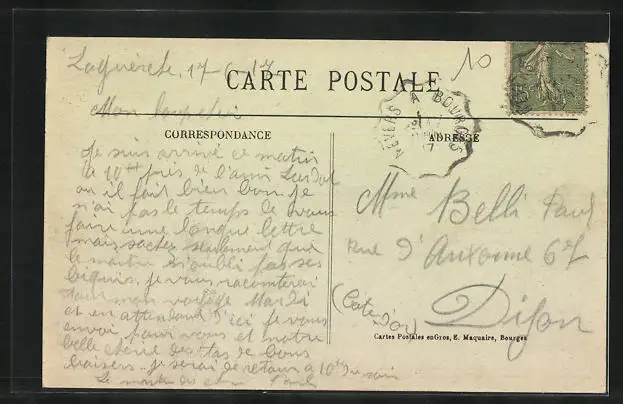 Laguerche, 17-6-17
10
CARTE POSTALE
Mon
NEVERS A BOURGES
CORRESPONDANCE
ADRESSE
Je suis arrivé ce matin
à 10H près de l'ami
ou il fait bien bon. Je
n'ai pas le temps de vous
faire une longue lettre
mais sachez seulement que
le martin n'oubli pas ses
je vous raconterai
tout mon voyage Mardi
et en attendant d'ici je vous
envoi pour vous et notre
belle chérie des tas de bons
baisers. je serai de retour a 10H du soir
Le
Paul
Mme Belli Paul
Rue d'Auxonne 67
Dijon
(Cote d'or)
Cartes Postales en Gros, E. Maquaire, Bourges